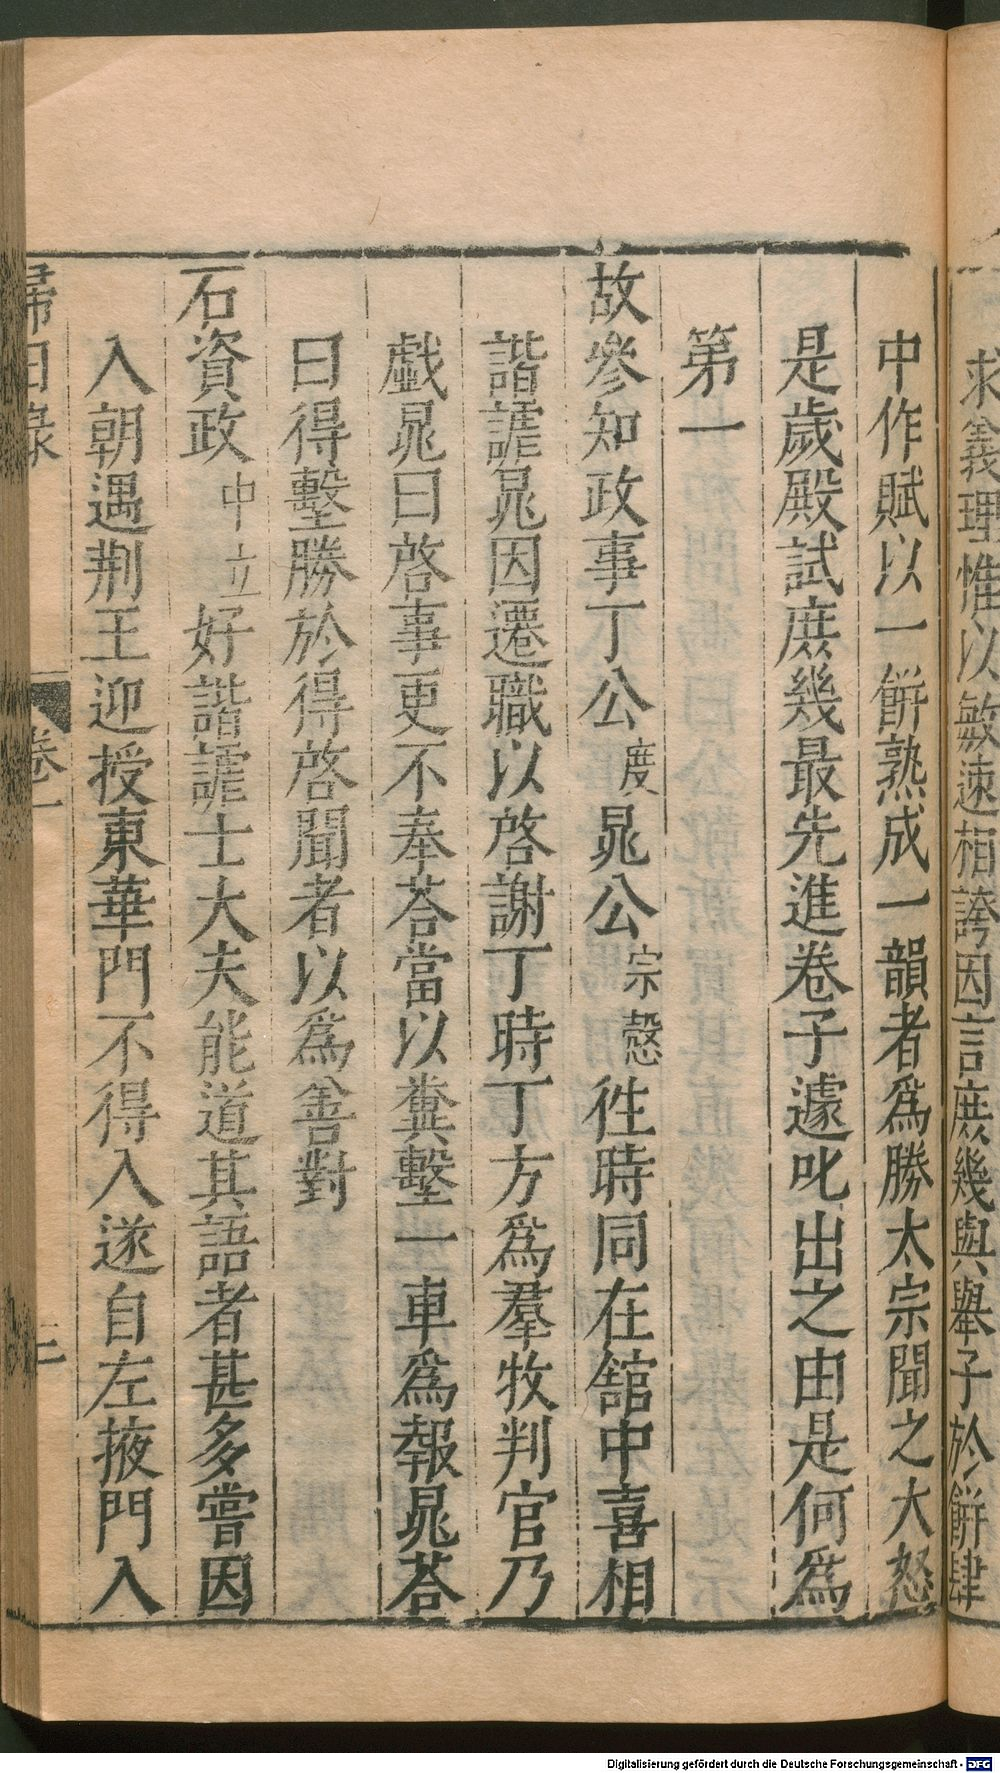 求義理惟以敏速相誇因言庶幾與舉子於餅肆
中作賦以一餅熟成一韻者爲勝太宗聞之大怒
是歲殿試庶幾最先進卷子遽叱出之由是何爲
第一
故參知政事丁公度晁公宗慤徃時同在館中喜相
諧謔晁因遷職以啓謝丁時丁方爲羣牧判官乃
戲晁曰啓事更不奉荅當以糞墼一車爲報晁荅
曰得墼勝於得啓聞者以爲善對
石資政中立好諧謔士大夫能道其語者甚多嘗因
入朝遇荆王迎授東華門不得入遂自左掖門入
歸田錄 卷一 二
Digitalisierung gefördert durch die Deutsche Forschungsgemeinschaft - DFG